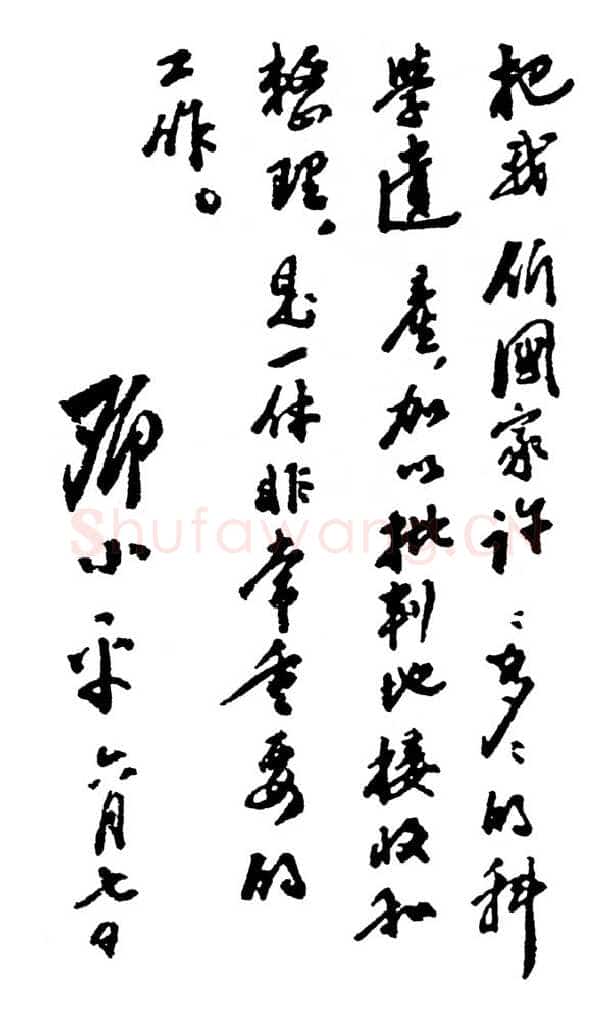 把我们國家许〻多〻的科
學遺產，加以批判地接收和
整理，是一件非常重要的
工作。
邓小平 六月七日
Shufawang.CN